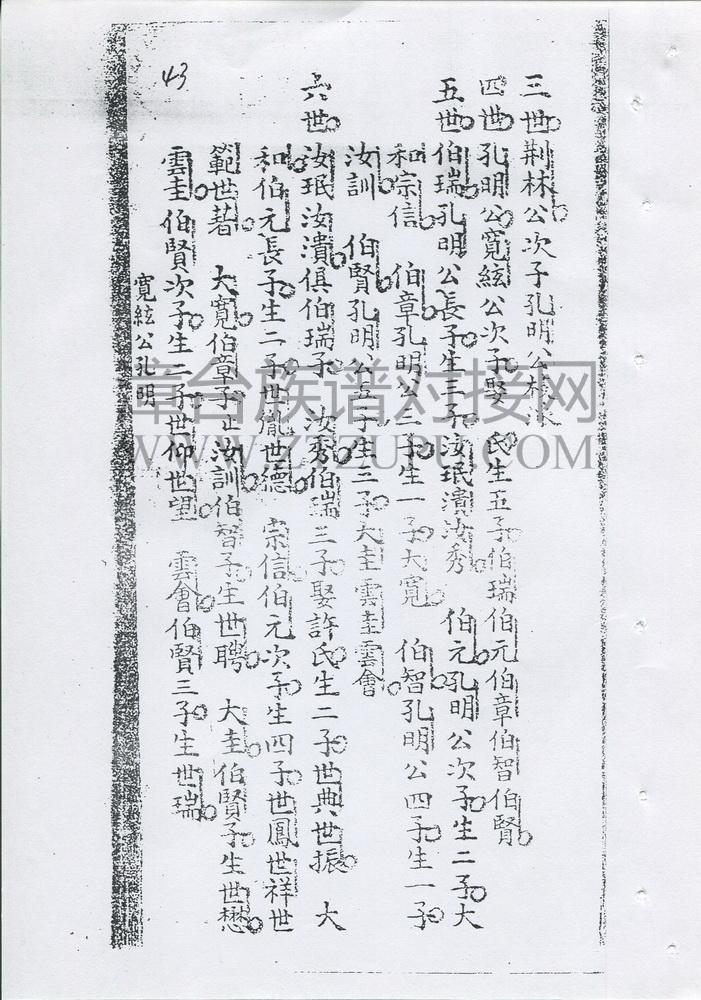 三世荆林公次子孔明公
四世孔明公寬絃公次子娶 氏生五子伯瑞伯元伯章伯智伯賢
五世伯瑞孔明公長子生三子汝珉濆汝秀 伯元孔明公次子生二子大
和宗信 伯章孔明公三子生一子大寬 伯智孔明公四子生一子
汝訓 伯賢孔明公五子生三子大圭雲圭雲會
六世汝珉汝濆俱伯瑞子 汝秀伯瑞三子娶許氏生二子世典世振 大
和伯元長子生二子世胤世德 宗信伯元次子生四子世鳳世祥世
範世著 大寬伯章子止 汝訓伯智子生世聘 大圭伯賢子生世懋
雲圭伯賢次子生二子世仰世望 雲會伯賢三子生世瑞
寬絃公孔明
43
章台族谱对接网
WWW.ZTZUPU.COM